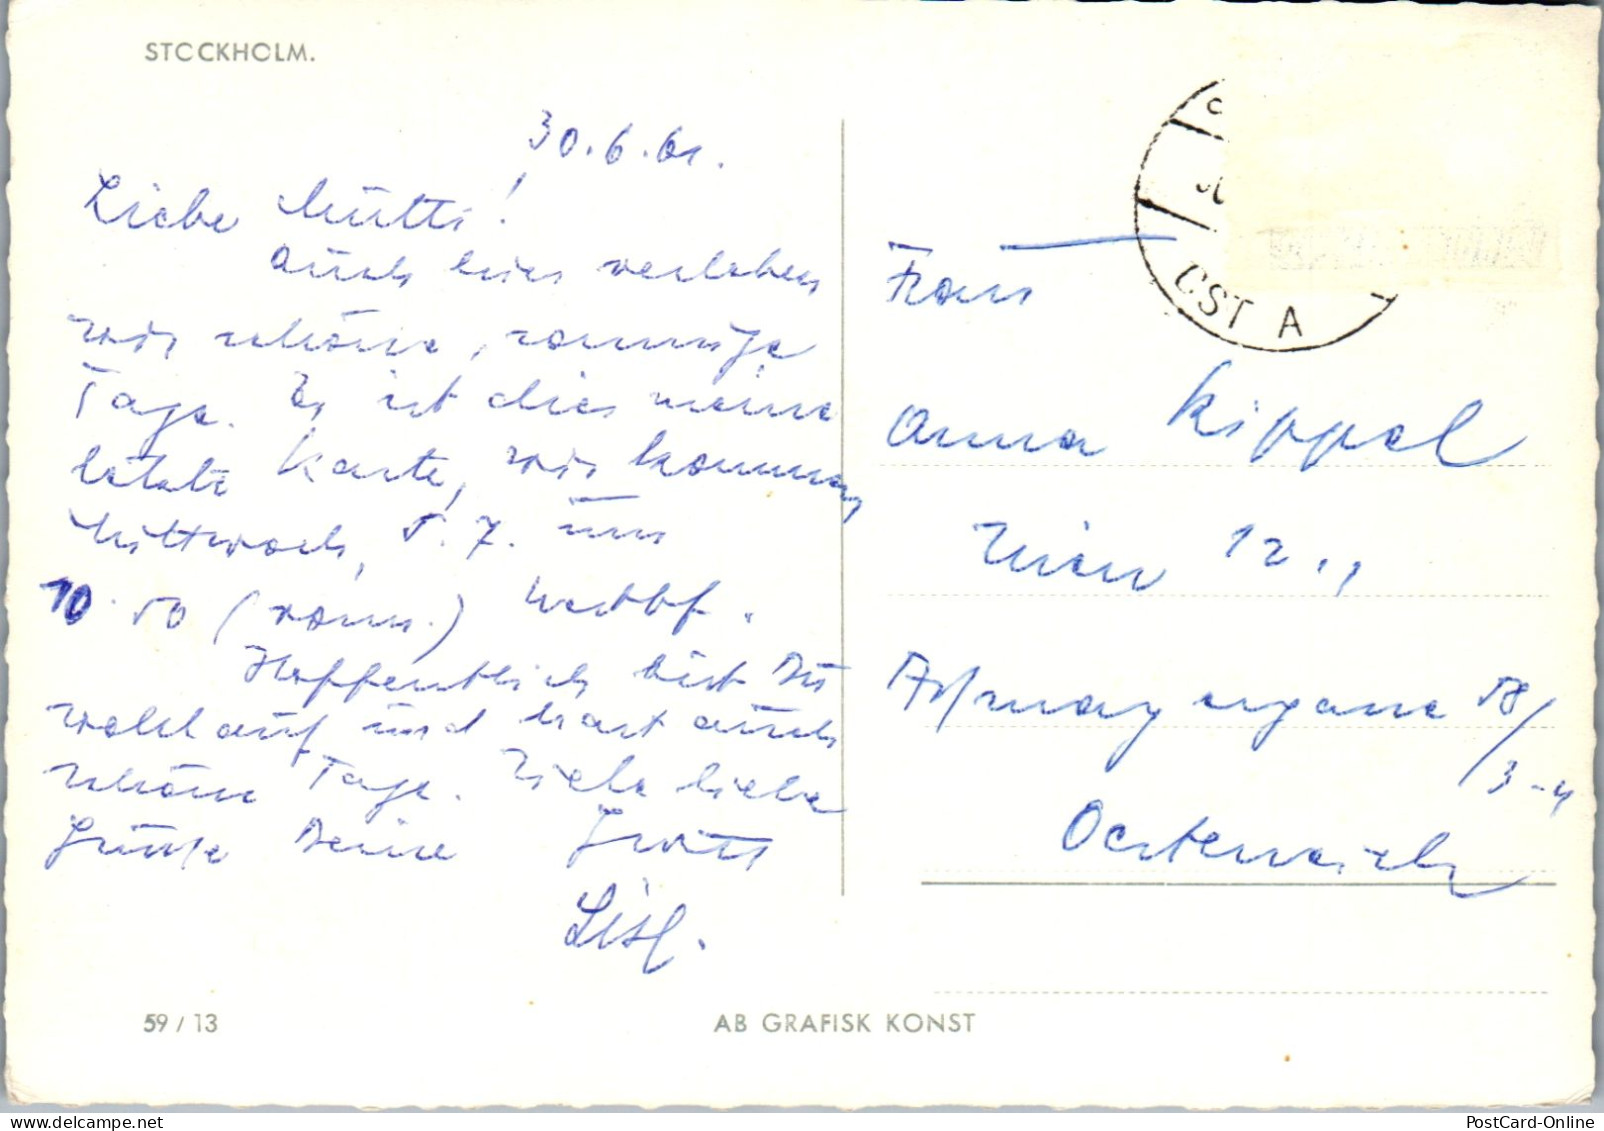 STOCKHOLM.
30.6.61.
Liebe Mutti!
Auch hier verleben
wir schöne, sonnige
Tage. Es ist dies meine
letzte Karte, wir kommen
Mittwoch, 5.7. um
10.50 (vorm.) Westbf.
Hoffentlich bist Du
wohlauf und hast auch
schöne Tage. Viele liebe
Grüsse Deine
Lisl.
59 / 13
AB GRAFISK KONST
ÖST A
Frau
Anna Kippel
Wien 12.,
58/
3-4
Oesterreich
PostCard-Online